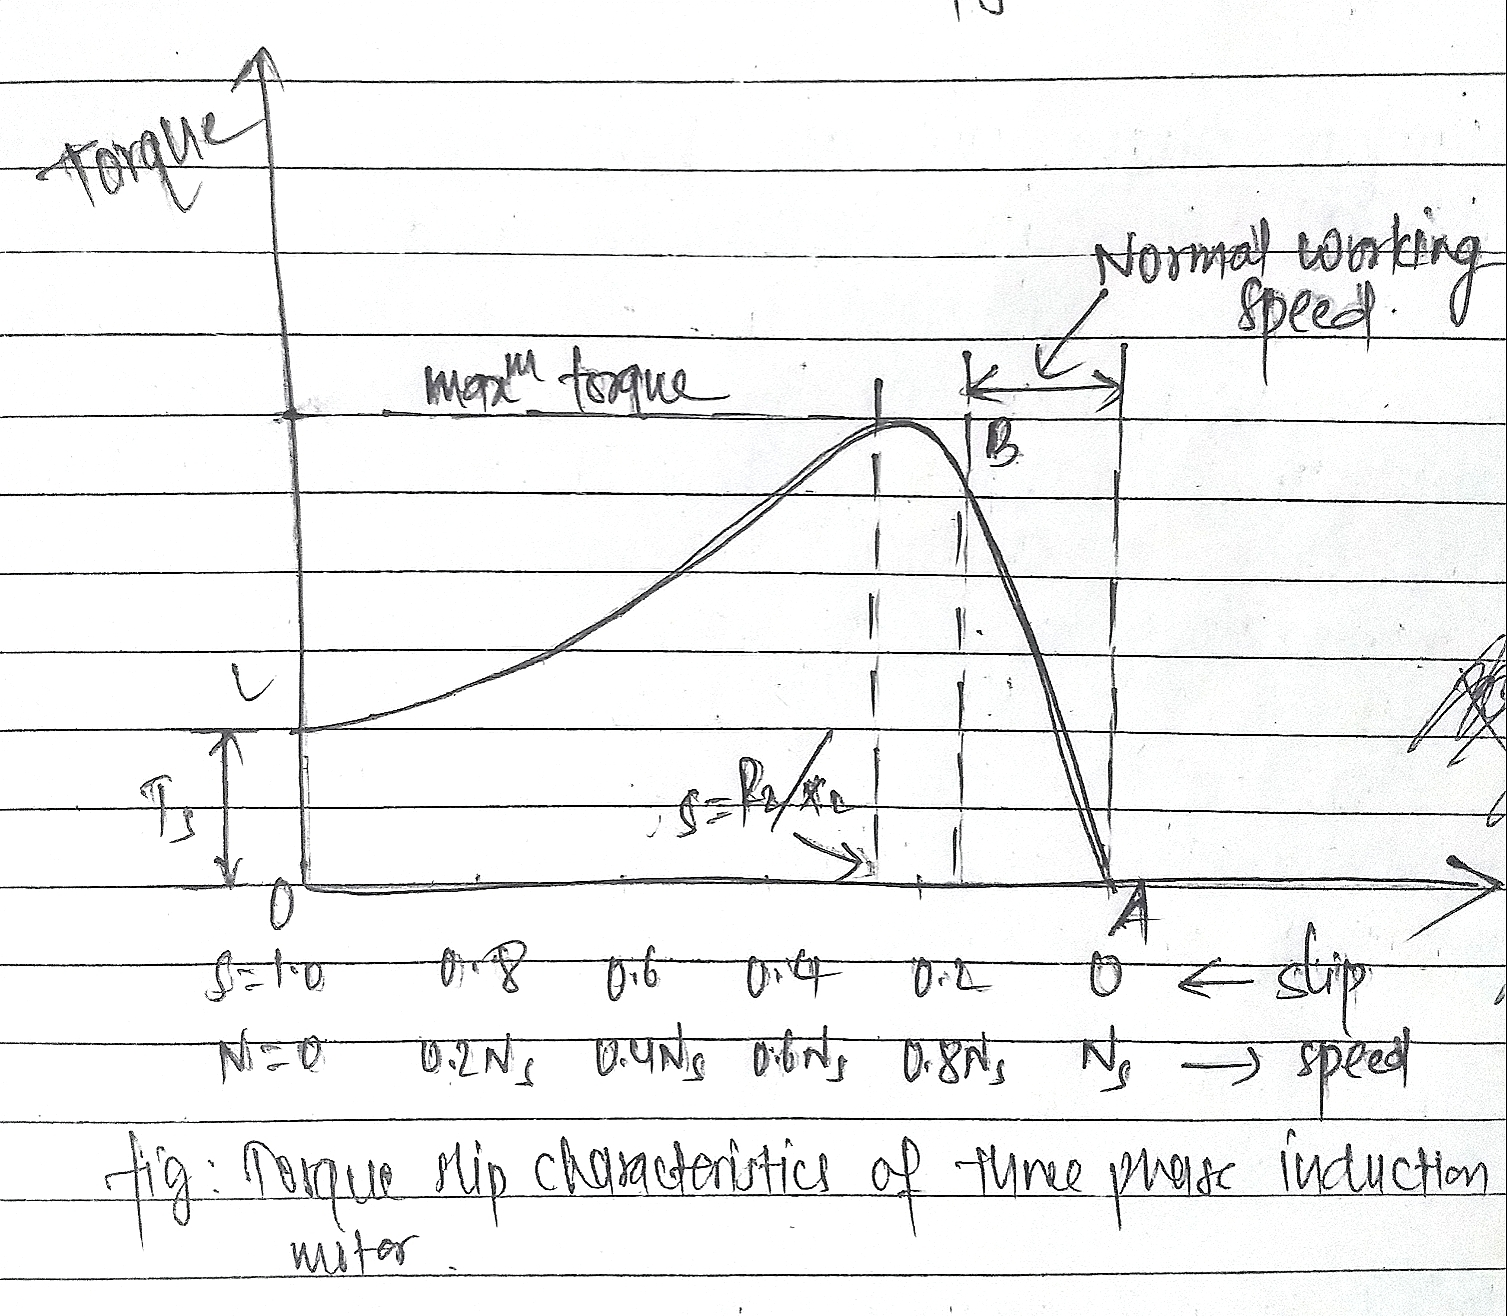 Torque
Normal working
speed.
maxᵐ torque
B
L
Ts
s=R2/x2
O
A
S=1.0 0.8 0.6 0.4 0.2 0 ← slip
N=0 0.2Ns 0.4Ns 0.6Ns 0.8Ns Ns → speed
fig: Torque slip characteristics of three phase induction
motor.